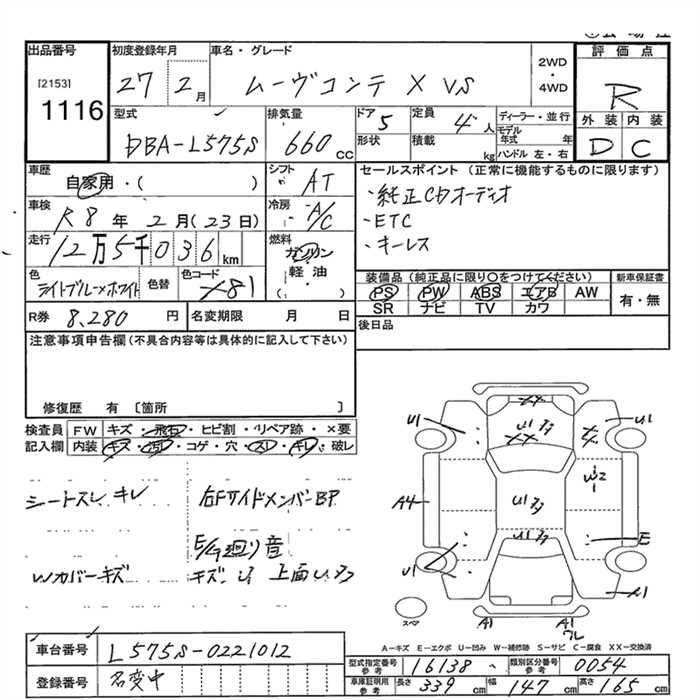 出品番号
[2153]
1116
初度登録年月
27 2月
車名・グレード
ムーヴコンテ X VS
2WD
・
4WD
評価点
R
外装 内装
D C
型式
DBA-L575S
排気量
660 CC
ドア
5
形状
定員
4人
積載
kg
ディーラー・並行
モデル年式 年
ハンドル 左・右
車歴
自家用・( )
シフト
AT
車検
R8年 2月(23日)
冷房
A/C
走行
12万5千036km
燃料
ガソリン
軽油
( )
色
ライトブルー×ホワイト
色替
色コード
X81
R券 8,280 円
名変期限 月 日
セールスポイント (正常に機能するものに限ります)
・純正CDオーディオ
・ETC
・キーレス
装備品(純正品に限り○をつけてください)
PS PW ABS エアB AW
SR ナビ TV カワ
新車保証書
有・無
後日品
注意事項申告欄(不具合内容等は具体的に記入して下さい)
修復歴 有 〔箇所 〕
検査員記入欄
FW キズ・飛石・ヒビ割・リペア跡・×要
内装 キズ・汚れ・コゲ・穴・スレ・キレ・破レ
シートスレ キレ
右Fサイドメンバー BP
E/G廻り音
Wカバーキズ
キズ U1 上面
XX
U1
U1
XX
U1
W2
A4
E
U1
A1
A1
スペア
A－キズ E－エクボ U－凹み W－補修跡 S－サビ C－腐食 XX－交換済
車台番号 L575S-0221012
登録番号 名変中
型式指定番号 参考 16138
類別区分番号 参考 0054
車庫証明用 参考 長さ 339cm 幅 147cm 高さ 165cm